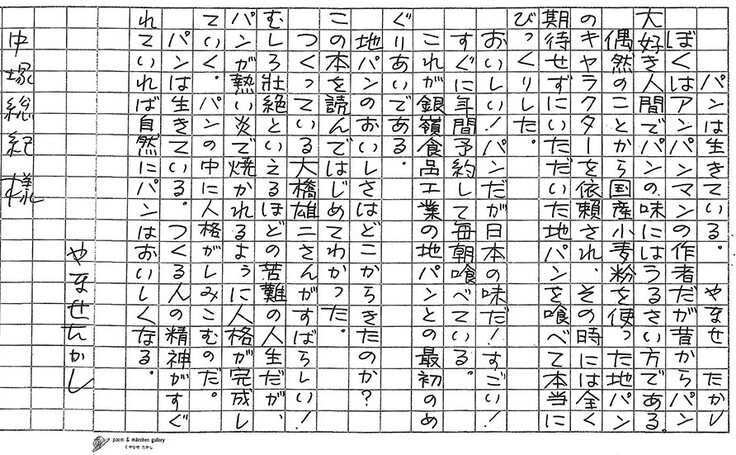 パンは生きている。 やなせ たかし
ぼくはアンパンマンの作者だが昔からパン
大好き人間でパンの味にはうるさい方である。
偶然のことから国産小麦粉を使った地パン
のキャラクターを依頼され、その時には全く
期待せずにいただいた地パンを喰べて本当に
びっくりした。
おいしい!パンだが日本の味だ!すごい!
すぐに年間予約して毎朝喰べている。
これが銀嶺食品工業の地パンとの最初のめ
ぐりあいである。
地パンのおいしさはどこからきたのか?
この本を読んではじめてわかった。
つくっている大橋雄二さんがすばらしい!
むしろ壮絶といえるほどの苦難の人生だが、
パンが熱い炎で焼かれるように人格が完成し
ていく。パンの中に人格がしみこむのだ。
パンは生きている。つくる人の精神がすぐ
れていれば自然にパンはおいしくなる。
やなせたかし
中塚総紀様
poem & märchen gallery
©やなせたかし